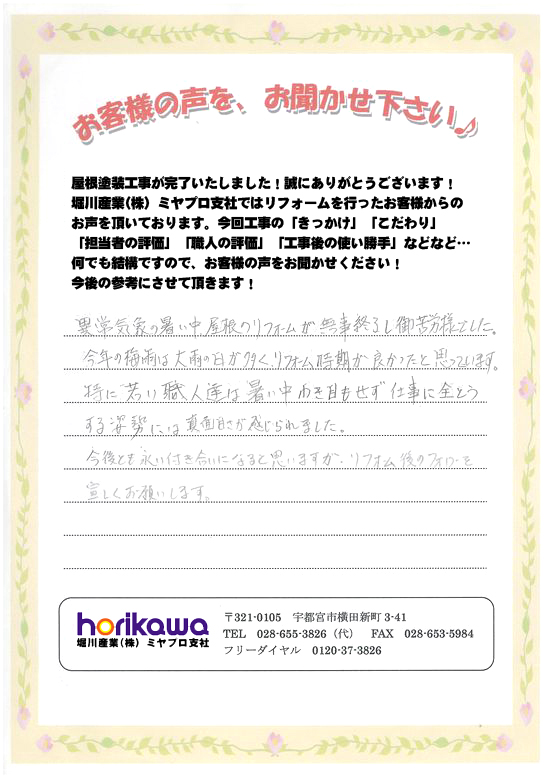 お客様の声を、お聞かせ下さい♪
屋根塗装工事が完了いたしました！誠にありがとうございます！
堀川産業(株) ミヤプロ支社ではリフォームを行ったお客様からの
お声を頂いております。今回工事の「きっかけ」「こだわり」
「担当者の評価」「職人の評価」「工事後の使い勝手」などなど…
何でも結構ですので、お客様の声をお聞かせください！
今後の参考にさせて頂きます！
異常気象の暑い中屋根のリフォームが無事終了し御苦労様でした。
今年の梅雨は大雨の日が多く、リフォーム時期が良かったと思っています。
特に若い職人達は暑い中わき目もせず仕事に全とう
する姿勢には真面目さが感じられました。
今後とも永い付き合いになると思いますが、リフォーム後のフォローを
宜しくお願いします。
horikawa
堀川産業(株) ミヤプロ支社
〒321-0105 宇都宮市横田新町 3-41
TEL 028-655-3826（代） FAX 028-653-5984
フリーダイヤル 0120-37-3826